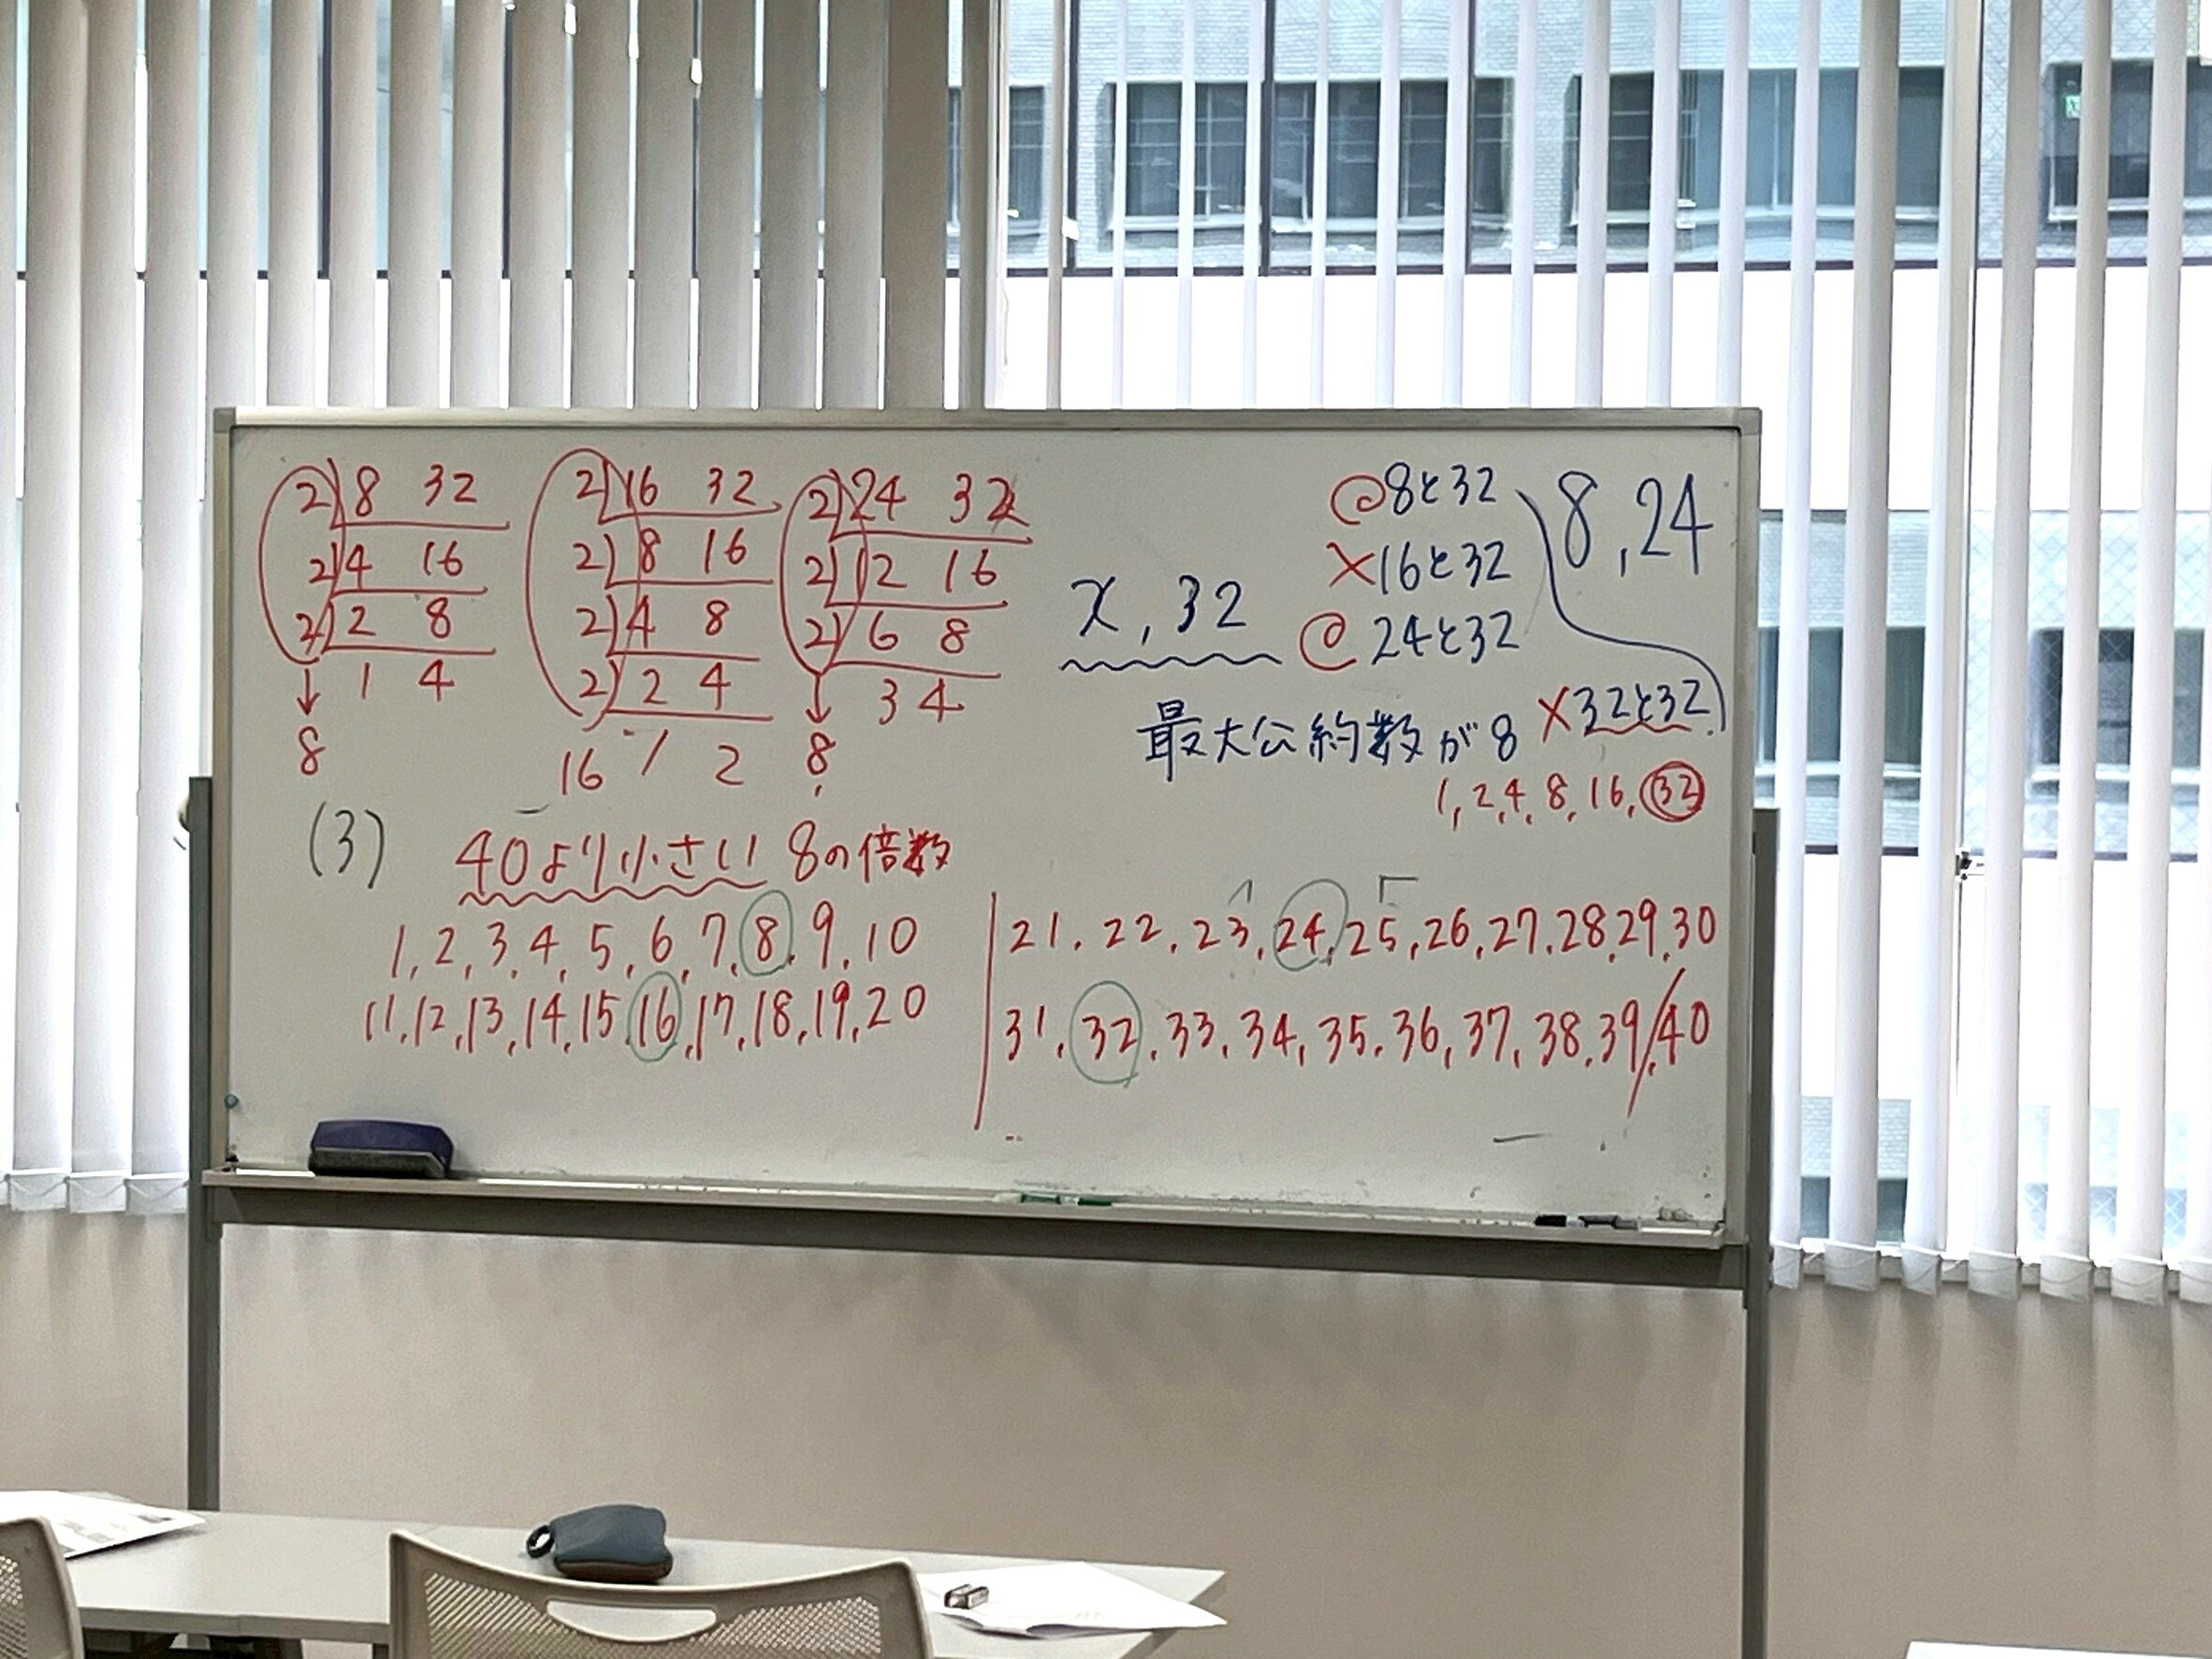 2)8 32
2)4 16
2)2 8
1 4
↓
8
2)16 32
2)8 16
2)4 8
2)2 4
16 1 2
2)24 32
2)12 16
2)6 8
3 4
↓
8
x, 32
8と32
×16と32
24と32
×32と32
8, 24
最大公約数が8
1, 2, 4, 8, 16, 32
(3)
40より小さい 8の倍数
1, 2, 3, 4, 5, 6, 7, 8, 9, 10
11, 12, 13, 14, 15, 16, 17, 18, 19, 20
21, 22, 23, 24, 25, 26, 27, 28, 29, 30
31, 32, 33, 34, 35, 36, 37, 38, 39, 40